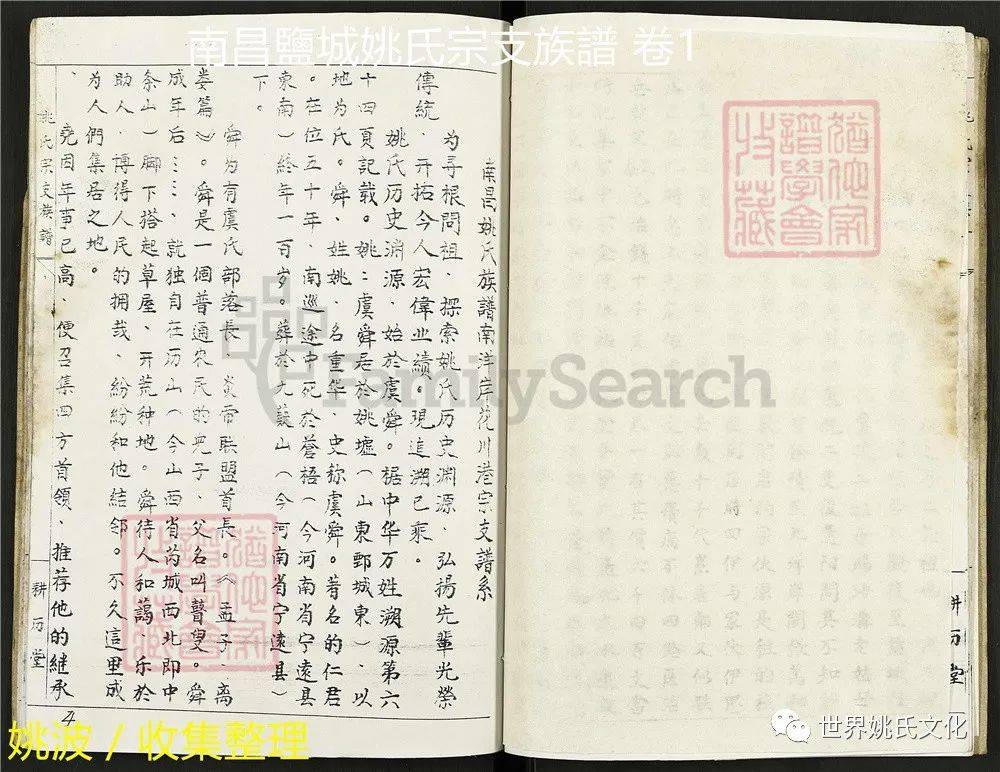 南昌鹽城姚氏宗支族譜 卷1
南昌姚氏族譜南洋岸花川港宗支譜系
为寻根問祖、探索姚氏历史渊源、弘揚先輩光榮
傳統、开拓今人宏偉业績。現追溯已乘。
姚氏历史渊源、始於虞舜。椐中华万姓溯源第六
十四頁記载。姚：虞舜居於姚墟（山東鄄城東）、以
地为氏。舜、姓姚、名重华、史称虞舜。著名的仁君
。在位五十年、南巡途中死於蒼梧（今河南省宁遠县
東南）終年一百岁。葬於九嶷山（今河南省宁遠县）
下。
舜为有虞氏部落長、炎帝联盟首長。《孟子、离
娄篇》。舜是一個普通农民的兒子、父名叫瞽叟。舜
成年后……、就独自在历山（今山西省芮城西北即中
条山）脚下搭起草屋、开荒种地。舜待人和藹、乐於
助人、博得人民的拥戠、紛紛和他結邻。不久這里成
为人們集居之地。
、堯因年事已高、便召集四方首領、推荐他的継承
姚氏宗支族譜
耕历堂
4
耕历堂
譜學會
收藏
譜學會
收藏
FamilySearch
姚波 / 收集整理
世界姚氏文化